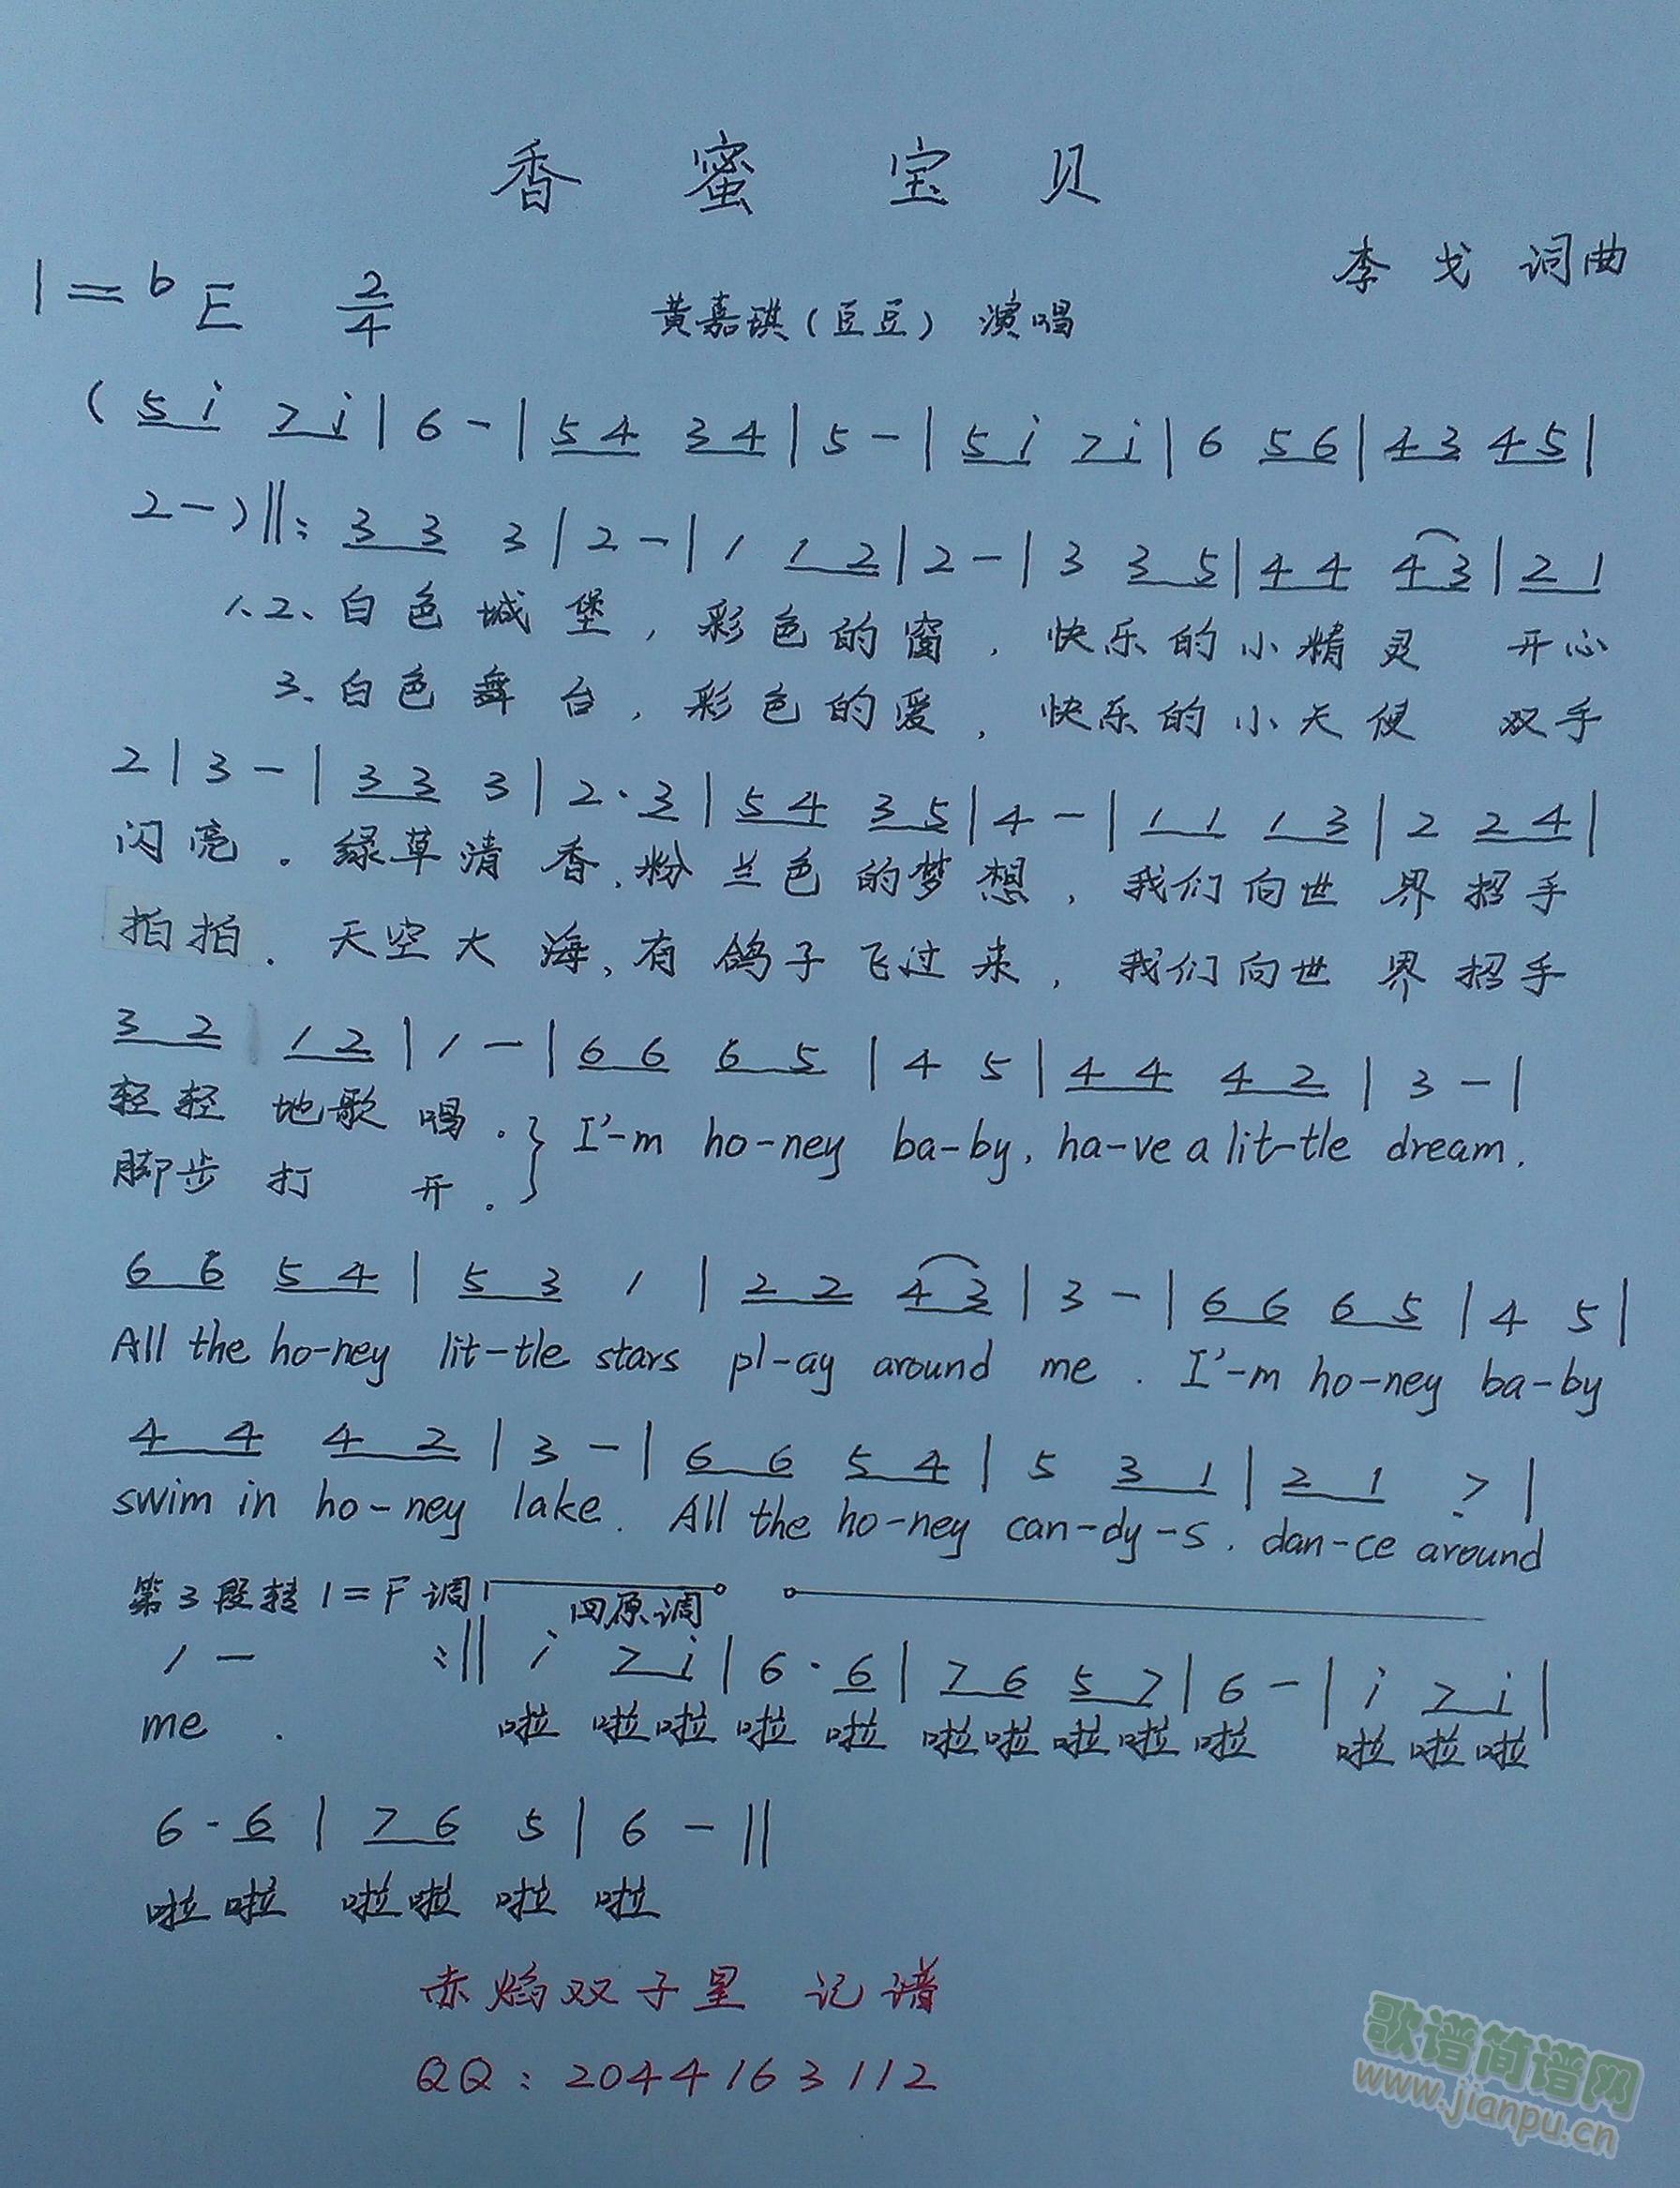 香 蜜 宝 贝
李 戈 词曲
1=bE 2/4 黄嘉琪(豆豆) 演唱
(5 i 7 i | 6 - | 5 4 3 4 | 5 - | 5 i 7 i | 6 5 6 | 4 3 4 5 |
2 - ) ‖: 3 3 3 | 2 - | 1 1 2 | 2 - | 3 3 5 | 4 4 4 3 | 2 1
1、2、白色城堡,彩色的窗,快乐的小精灵 开心
3、白色舞台,彩色的爱,快乐的小天使 双手
2 | 3 - | 3 3 3 | 2 · 3 | 5 4 3 5 | 4 - | 1 1 1 3 | 2 2 4 |
闪亮。绿草清香,粉兰色的梦想,我们向世界招手
拍拍.天空大海,有鸽子飞过来,我们向世界招手
3 2 1 2 | 1 - | 6 6 6 5 | 4 5 | 4 4 4 2 | 3 - |
轻轻 地歌 唱.} I'-m ho-ney ba-by, ha-ve a lit-tle dream.
脚步 打 开。
6 6 5 4 | 5 3 1 | 2 2 4 3 | 3 - | 6 6 6 5 | 4 5 |
All the ho-ney lit-tle stars pl-ay around me . I'-m ho-ney ba-by
4 4 4 2 | 3 - | 6 6 5 4 | 5 3 1 | 2 1 7 |
swim in ho-ney lake. All the ho-ney can-dy-s. dan-ce around
第3段转1=F调 回原调
1 - :‖ i 7 i | 6 · 6 | 7 6 5 7 | 6 - | i 7 i |
me . 啦 啦啦 啦 啦 啦啦 啦啦 啦 啦 啦啦
6 · 6 | 7 6 5 | 6 - ‖
啦啦 啦啦 啦 啦
赤焰双子星 记谱
QQ:2044163112
歌谱简谱网
www.jianpu.cn